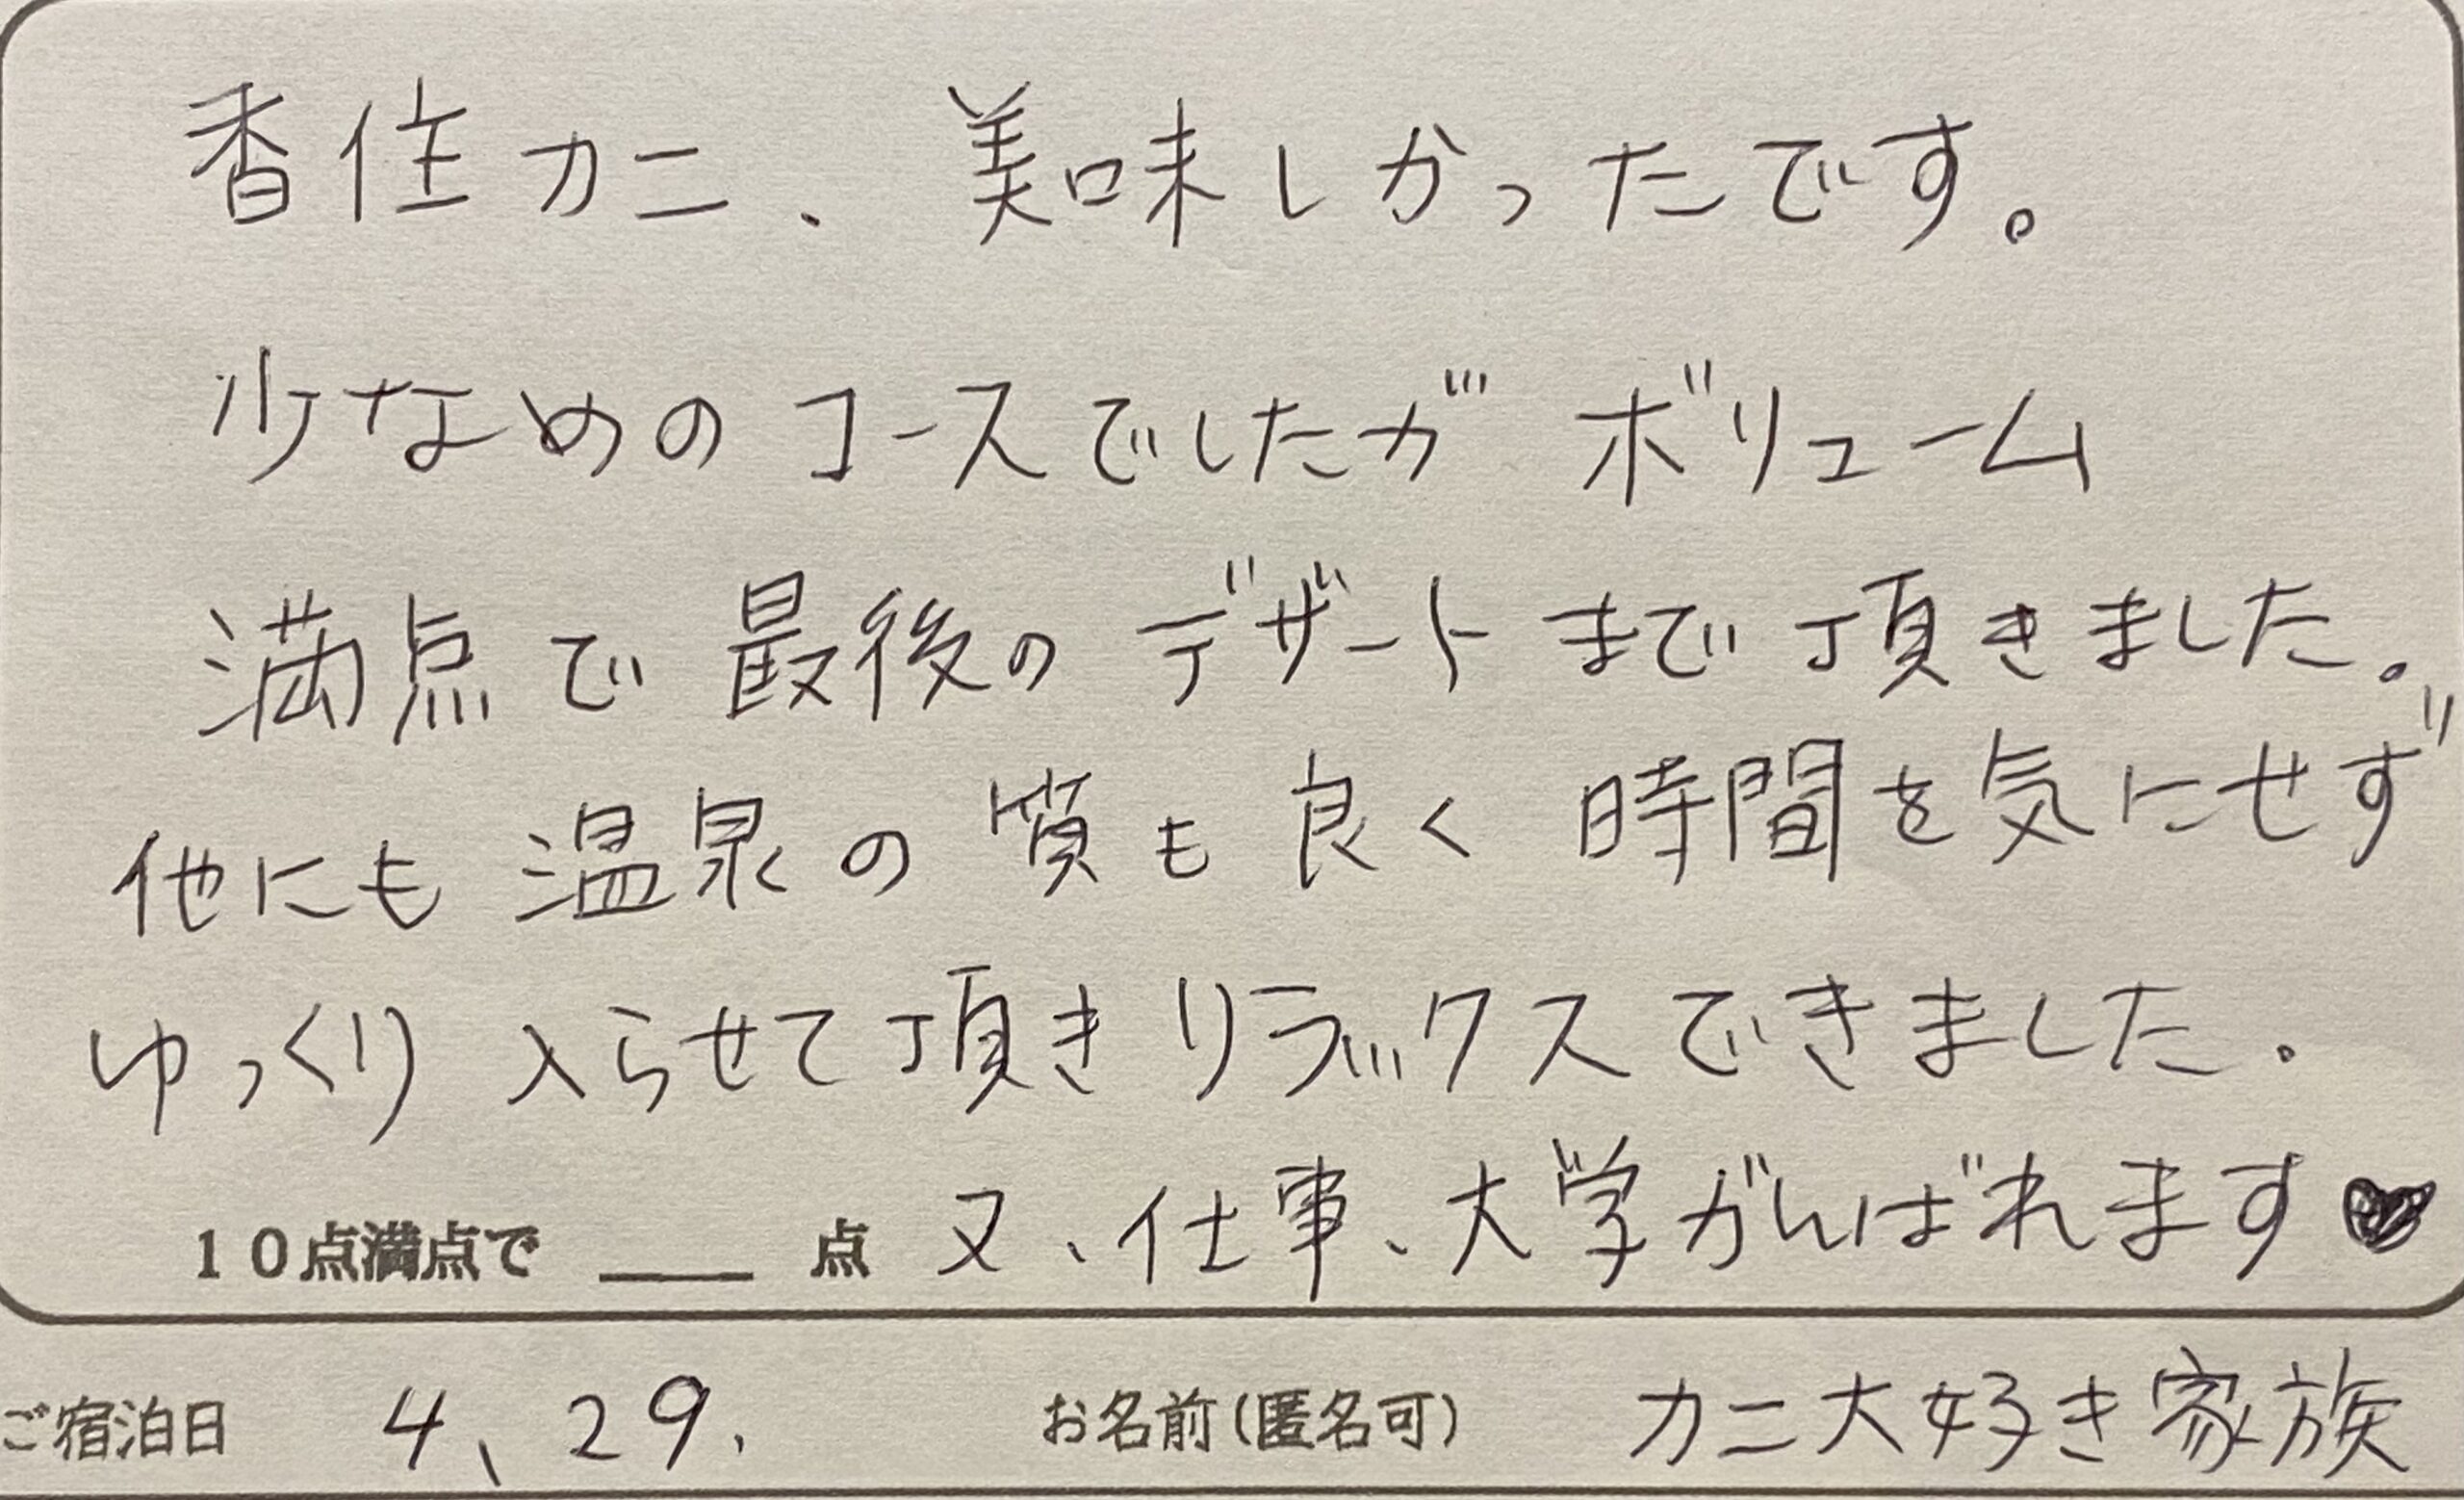 香住カニ、美味しかったです。
少なめのコースでしたがボリューム
満点で最後のデザートまで頂きました。
他にも温泉の質も良く時間を気にせず
ゆっくり入らせて頂きリラックスできました。
10点満点で ＿＿ 点 又、仕事、大学がんばれます♥
ご宿泊日 4、29. お名前(匿名可) カニ大好き家族